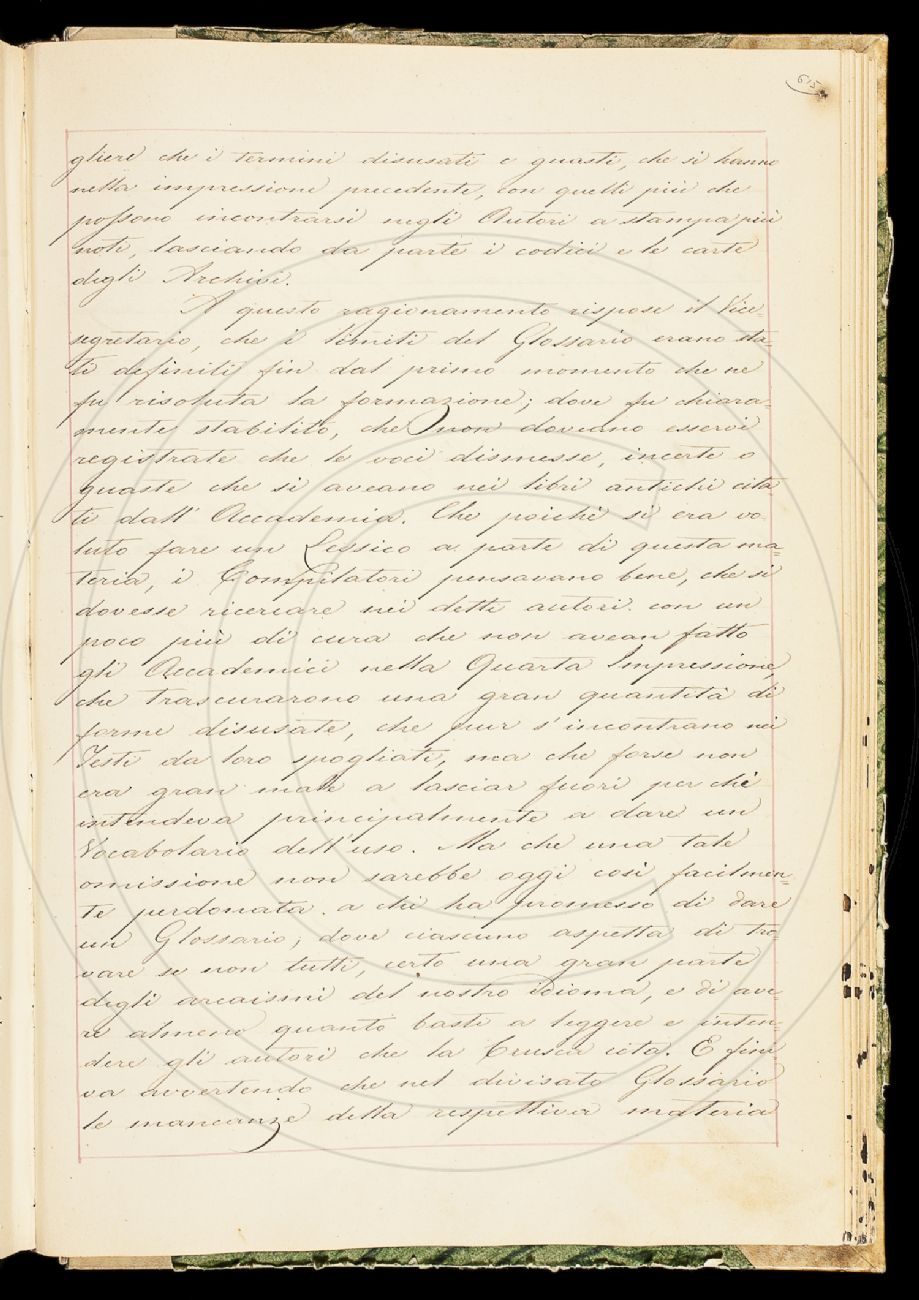 615
gliere che i termini disusati e guasti, che si hanno
nella impressione precedente, con quelli più che
possono incontrarsi negli Autori a stampa più
noti, lasciando da parte i codici e le carte
degli Archivi.
A questo ragionamento rispose il Vice=
segretario, che i limiti del Glossario erano sta=
ti definiti fin dal primo momento che ne
fu risoluta la formazione; dove fu chiara=
mente stabilito, che non doveano esservi
registrate che le voci dismesse, incerte o
guaste che si aveano nei libri antichi cita
ti dall'Accademia. Che poichè si era vo
luto fare un Lessico a parte di questa ma=
teria, i Compilatori pensavano bene, che si
dovesse ricercare nei detti autori con un
poco più di cura che non avean fatto
gli Accademici nella Quarta Impressione,
che trascurarono una gran quantità di
forme disusate, che pur s'incontrano nei
Testi da loro spogliati, ma che forse non
era gran male a lasciar fuori per chi
intendeva principalmente a dare un
Vocabolario dell'uso. Ma che una tale
omissione non sarebbe oggi così facilmen=
te perdonata a chi ha promesso di dare
un Glossario, dove ciascuno aspetta di tro=
vare se non tutti, certo una gran parte
degli arcaismi del nostro idioma, e di ave=
re almeno quanto basti a leggere e inten=
dere gli autori che la Crusca cita. E fini
va avvertendo che nel divisato Glossario
le mancanze della respettiva materia